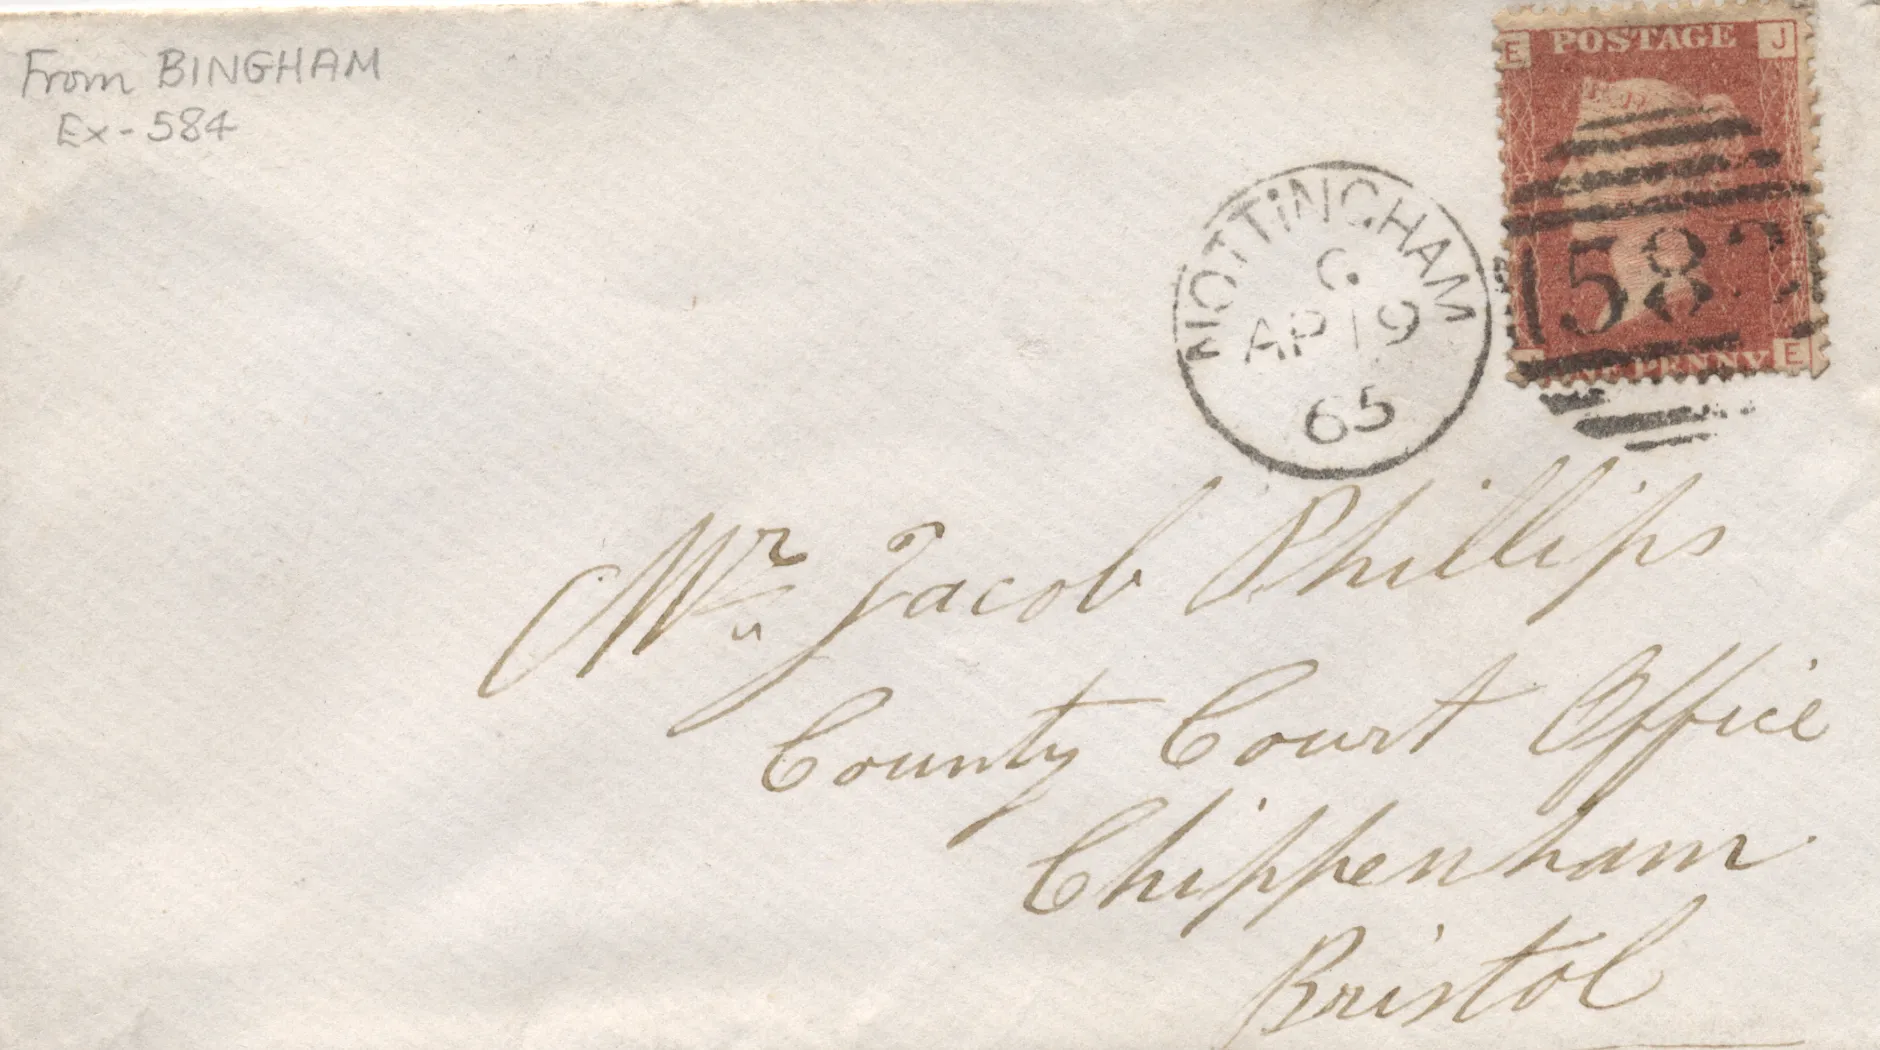 From BINGHAM
Ex-584
E POSTAGE J
NOTTINGHAM
C
AP 19
65
583
E
Mr Jacob Phillips
County Court Office
Chippenham
Bristol